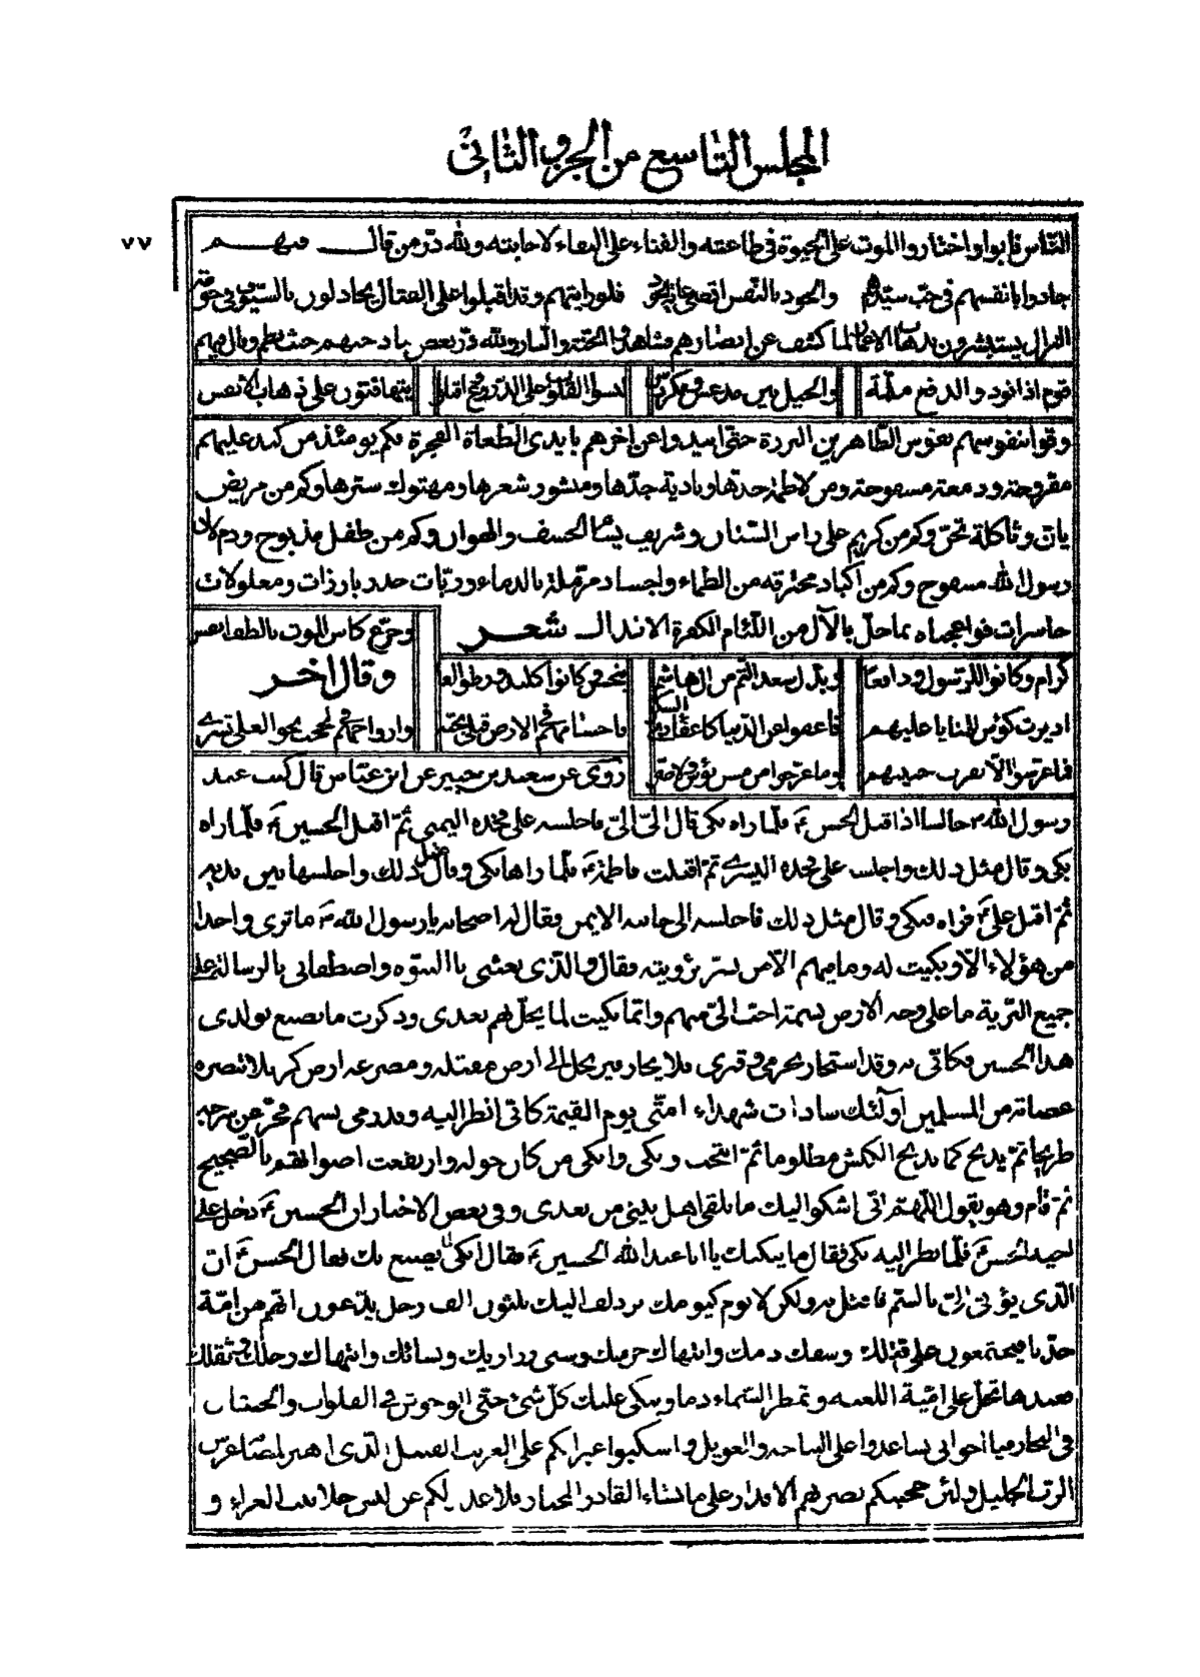 المجلس التاسع من الجزء الثاني
٧٧
الناس فابوا واختاروا الموت على الحيوة في طاعته والفناء على البقاء لاجابته ولله در من قال فيهم
جادوا بانفسهم في حب سيدهم والجود بالنفس اقصى غاية الجود فلو رايتهم وقد اقبلوا على القتال يجادلون بالسيوف في حومة
النزال يستبشرون بذهاب الاعمار لما كشف عن ابصارهم فشاهدوا الجنة والنار ولله در بعض مادحيهم حيث نظم وقال فيهم
قوم اذا نودوا لدفع ملمة والخيل بين مدعس ومكردس لبسوا القلوب على الدروع واقبلوا يتهافتون على ذهاب الانفس
وقوا بنفوسهم نفوس الطاهرين البررة حتى ابيدوا عن اخرهم بايدي الطغاة الفجرة فكم يومئذ من كبد عليهم
مقروحة ودمعة مسفوحة ومن لاطمة خدها وبادية جدها ومنشور شعرها ومهتوك سترها وكم من مريض
يان وثاكلة تحن وكم من كريم على راس السنان وشريف يسام الخسف والهوان وكم من طفل مذبوح ودم لال
رسول الله مسفوح وكم من اكباد محترقه من الظماء واجساد مرملة بالدماء وربات خدد بارزات ومغلولات
حاسرات فوا عجباه مما حل بالآل من اللئام الكفرة الانذال شعر
كرام وكانوا للرسول ودايعا
وجرع كاس الموت بالطف انفس
وقال اخر
اديرت كؤس للمنايا عليهم
فما عرسوا الا بقرب حبيبهم
روى عن سعيد بن جبير عن ابن عباس قال كنت عند
رسول الله ص جالسا اذ اقبل الحسن ع فلما راه بكى قال الي الي فاجلسه على فخذه اليمنى ثم اقبل الحسين ع فلما راه
بكى وقال مثل ذلك واجلسه على فخذه اليسرى ثم اقبلت فاطمة ع فلما راها بكى وقال مثل ذلك واجلسها بين يديه
ثم اقبل علي ع فراه فبكى وقال مثل ذلك فاجلسه الى جانبه الايمن فقال له اصحابه يا رسول الله ص ما ترى واحدا
من هؤلاء الا وبكيت له وما فيهم الا من تسر برؤيته فقال والذي بعثني بالنبوة واصطفاني بالرسالة على
جميع البرية ما على وجه الارض نسمة احب الي منهم وانما بكيت لما يحل بهم بعدي وذكرت ما يصنع بولدي
هذا الحسين فكاني به وقد استجار بحرمي وقبري فلا يجار فيرحل الى ارض مقتله ومصرعه ارض كربلا تنصره
عصابة من المسلمين اولئك سادات شهداء امتي يوم القيمة كاني انظر اليه وقد رمى بسهم فخر عن فرسه
طريحا ثم يذبح كما يذبح الكبش مظلوما ثم انتحب وبكى وابكى من كان حوله وارتفعت اصواتهم بالضجيج
ثم قام وهو يقول اللهم اني اشكو اليك ما يلقى اهل بيتي من بعدي وفي بعض الاخبار ان الحسين ع دخل على
اخيه الحسن ع فلما نظر اليه بكى فقال ما يبكيك يا ابا عبد الله الحسين ع فقال ابكي لما يصنع بك فقال الحسن ع ان
الذي يؤتى الي بالسم فاقتل به ولكن لا يوم كيومك يزدلف اليك ثلثون الف رجل يدعون انهم من امة
جدنا فيجتمعون على قتلك وسفك دمك وانتهاك حرمتك وسبي ذراريك ونسائك وانتهاك رحلك وثقلك
فعندها تحل على امية اللعنه وتمطر السماء دما ويبكى عليك كل شئ حتى الوحوش في الفلوات والحيتان
في البحار فيا اخواني ساعدوا على النياحه والعويل واسكبوا عبراتكم على الغريب القتيل الذي اهتز لمصابه عرش
الرب الجليل ولئن حجبتكم عن نصرتهم الاقدار على ما يشاء القادر المختار فلا عذر لكم عن لبس جلابيب العزاء و